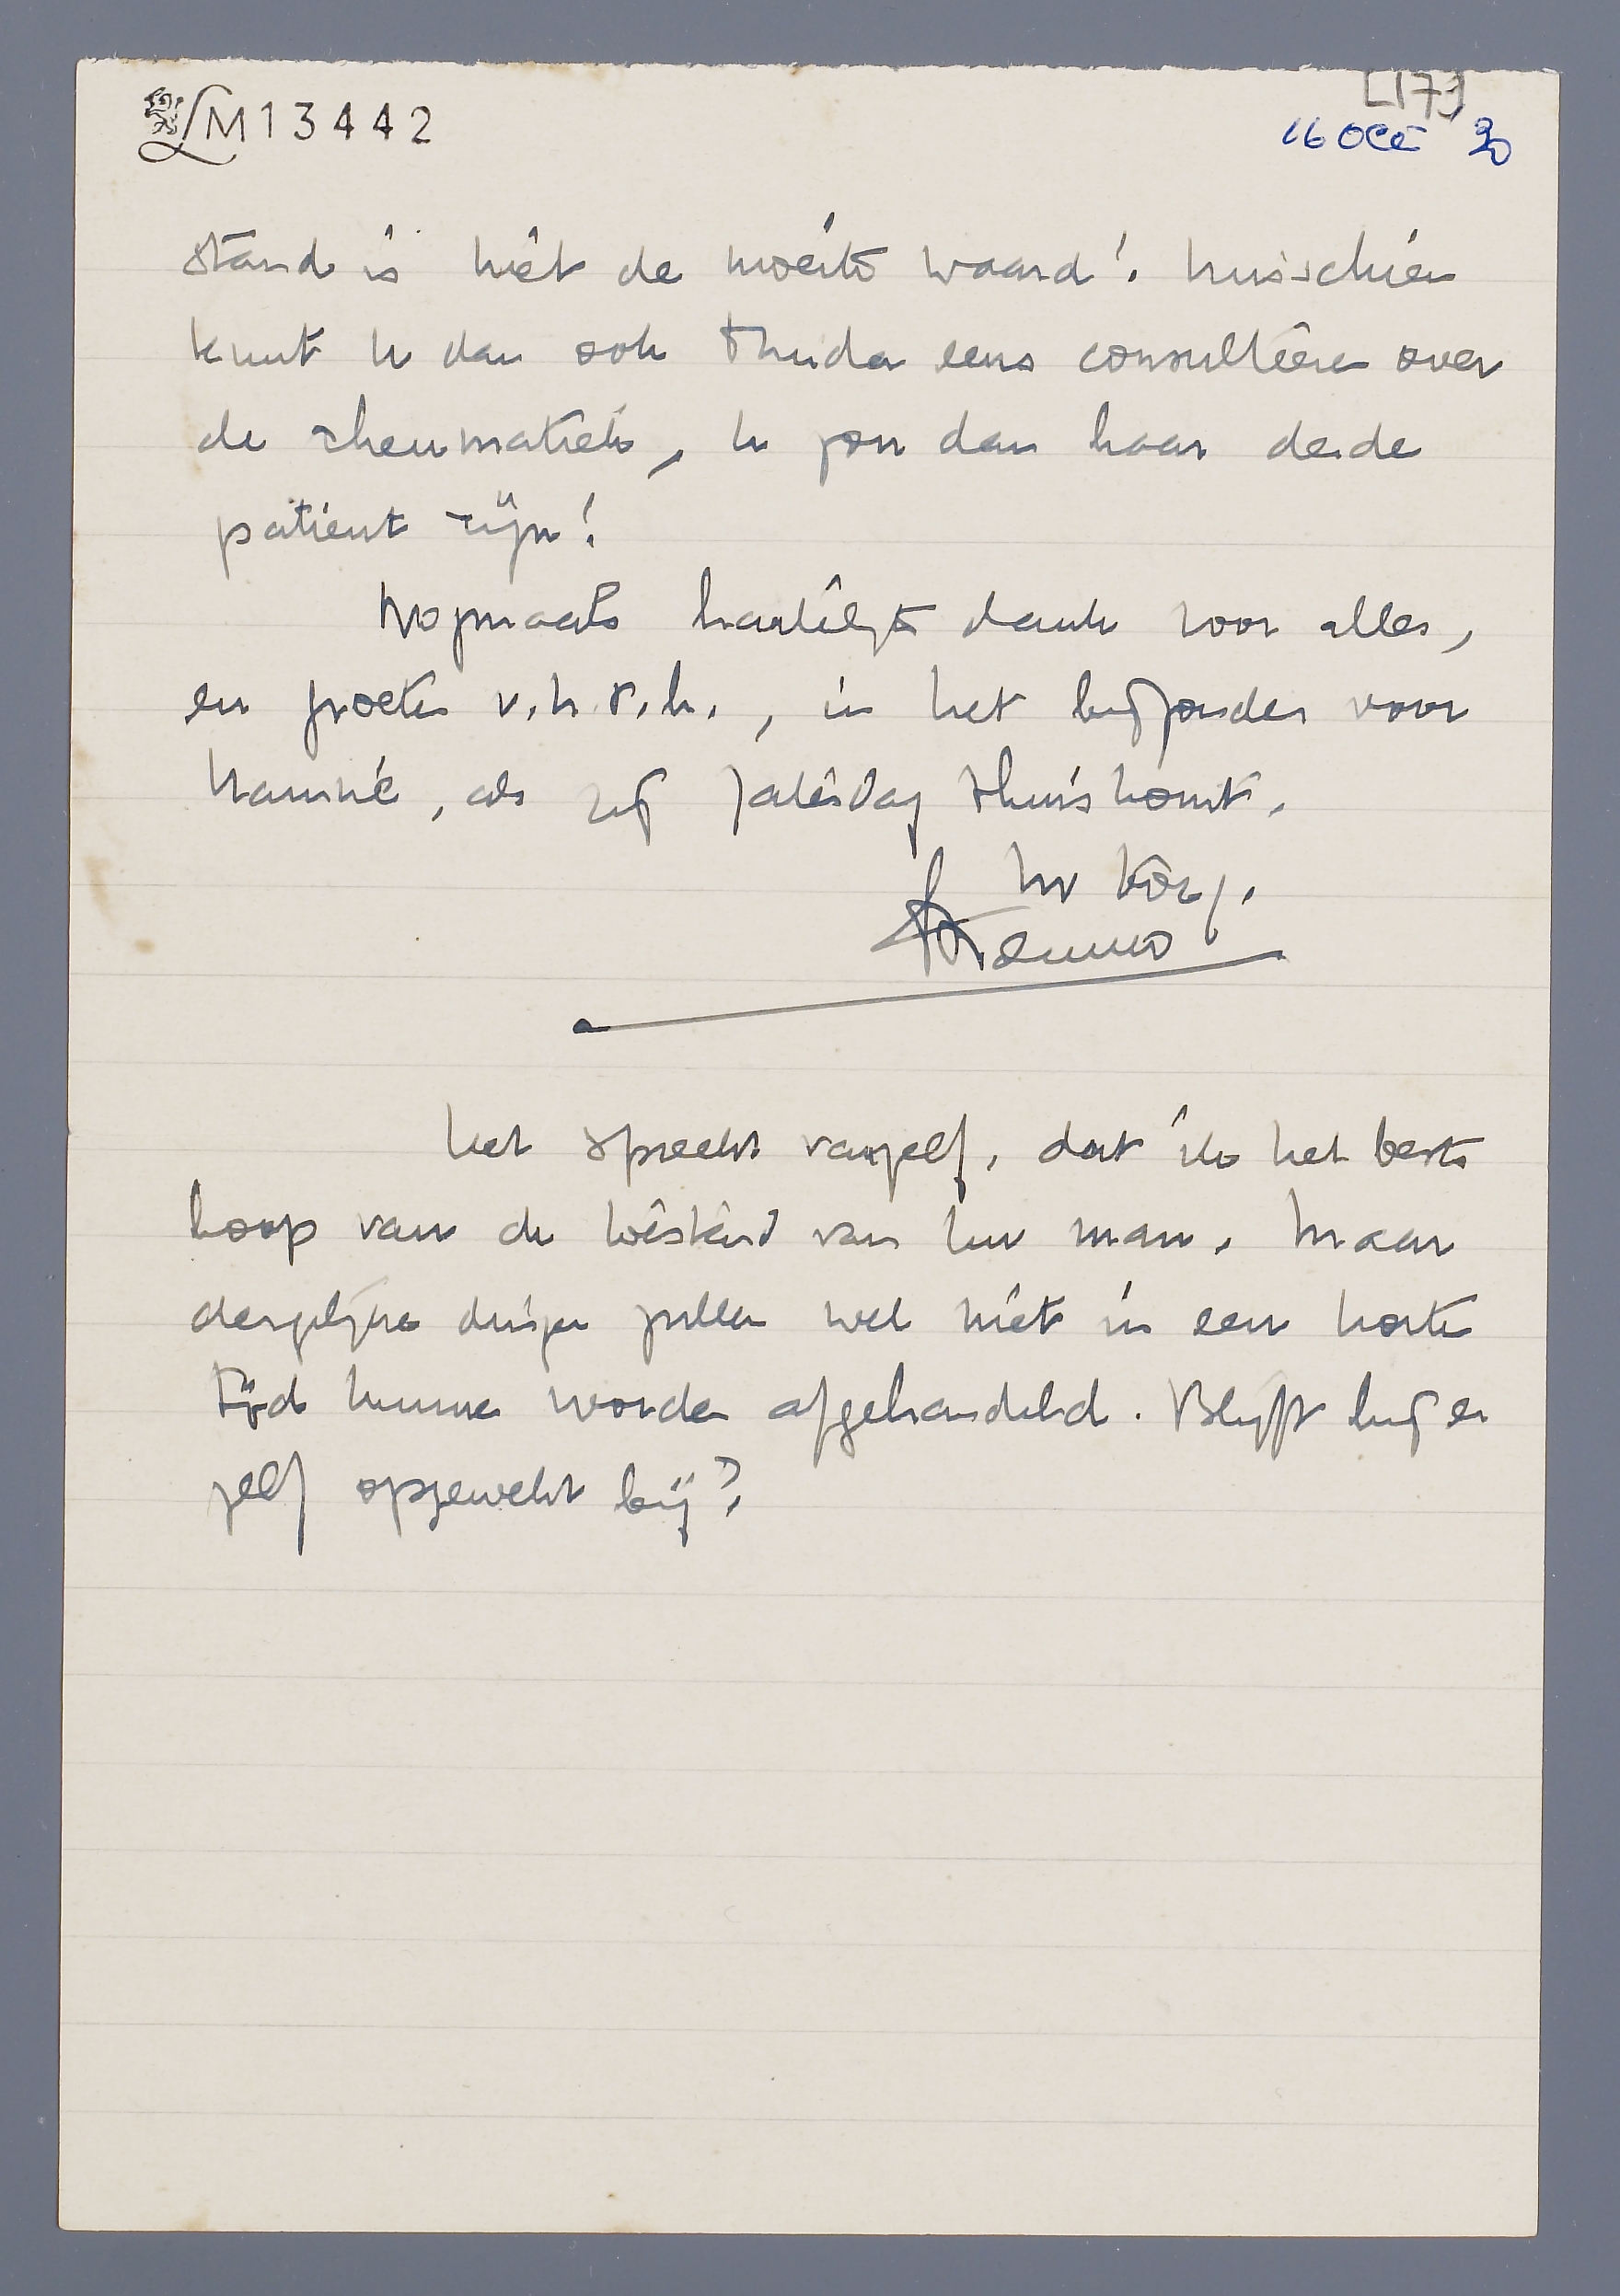 LM13442
[17]
16 Oct 30
stand is niet de moeite waard! Misschien
kunt U dan ook Thuda eens consulteeren over
de rheumatiek, U zou dan haar derde
patient zijn!
Nogmaals hartelijk dank voor alles,
en groeten v.h.t.h., in het bijzonder voor
Hannie, als zij Zaterdag thuiskomt.
Uw toeg.
Menno
Het spreekt vanzelf, dat ik het beste
hoop van de toestand van Uw man. Maar
dergelijke dingen zullen wel niet in een korte
tijd kunnen worden afgehandeld. Blijft hij er
zelf opgewekt bij?